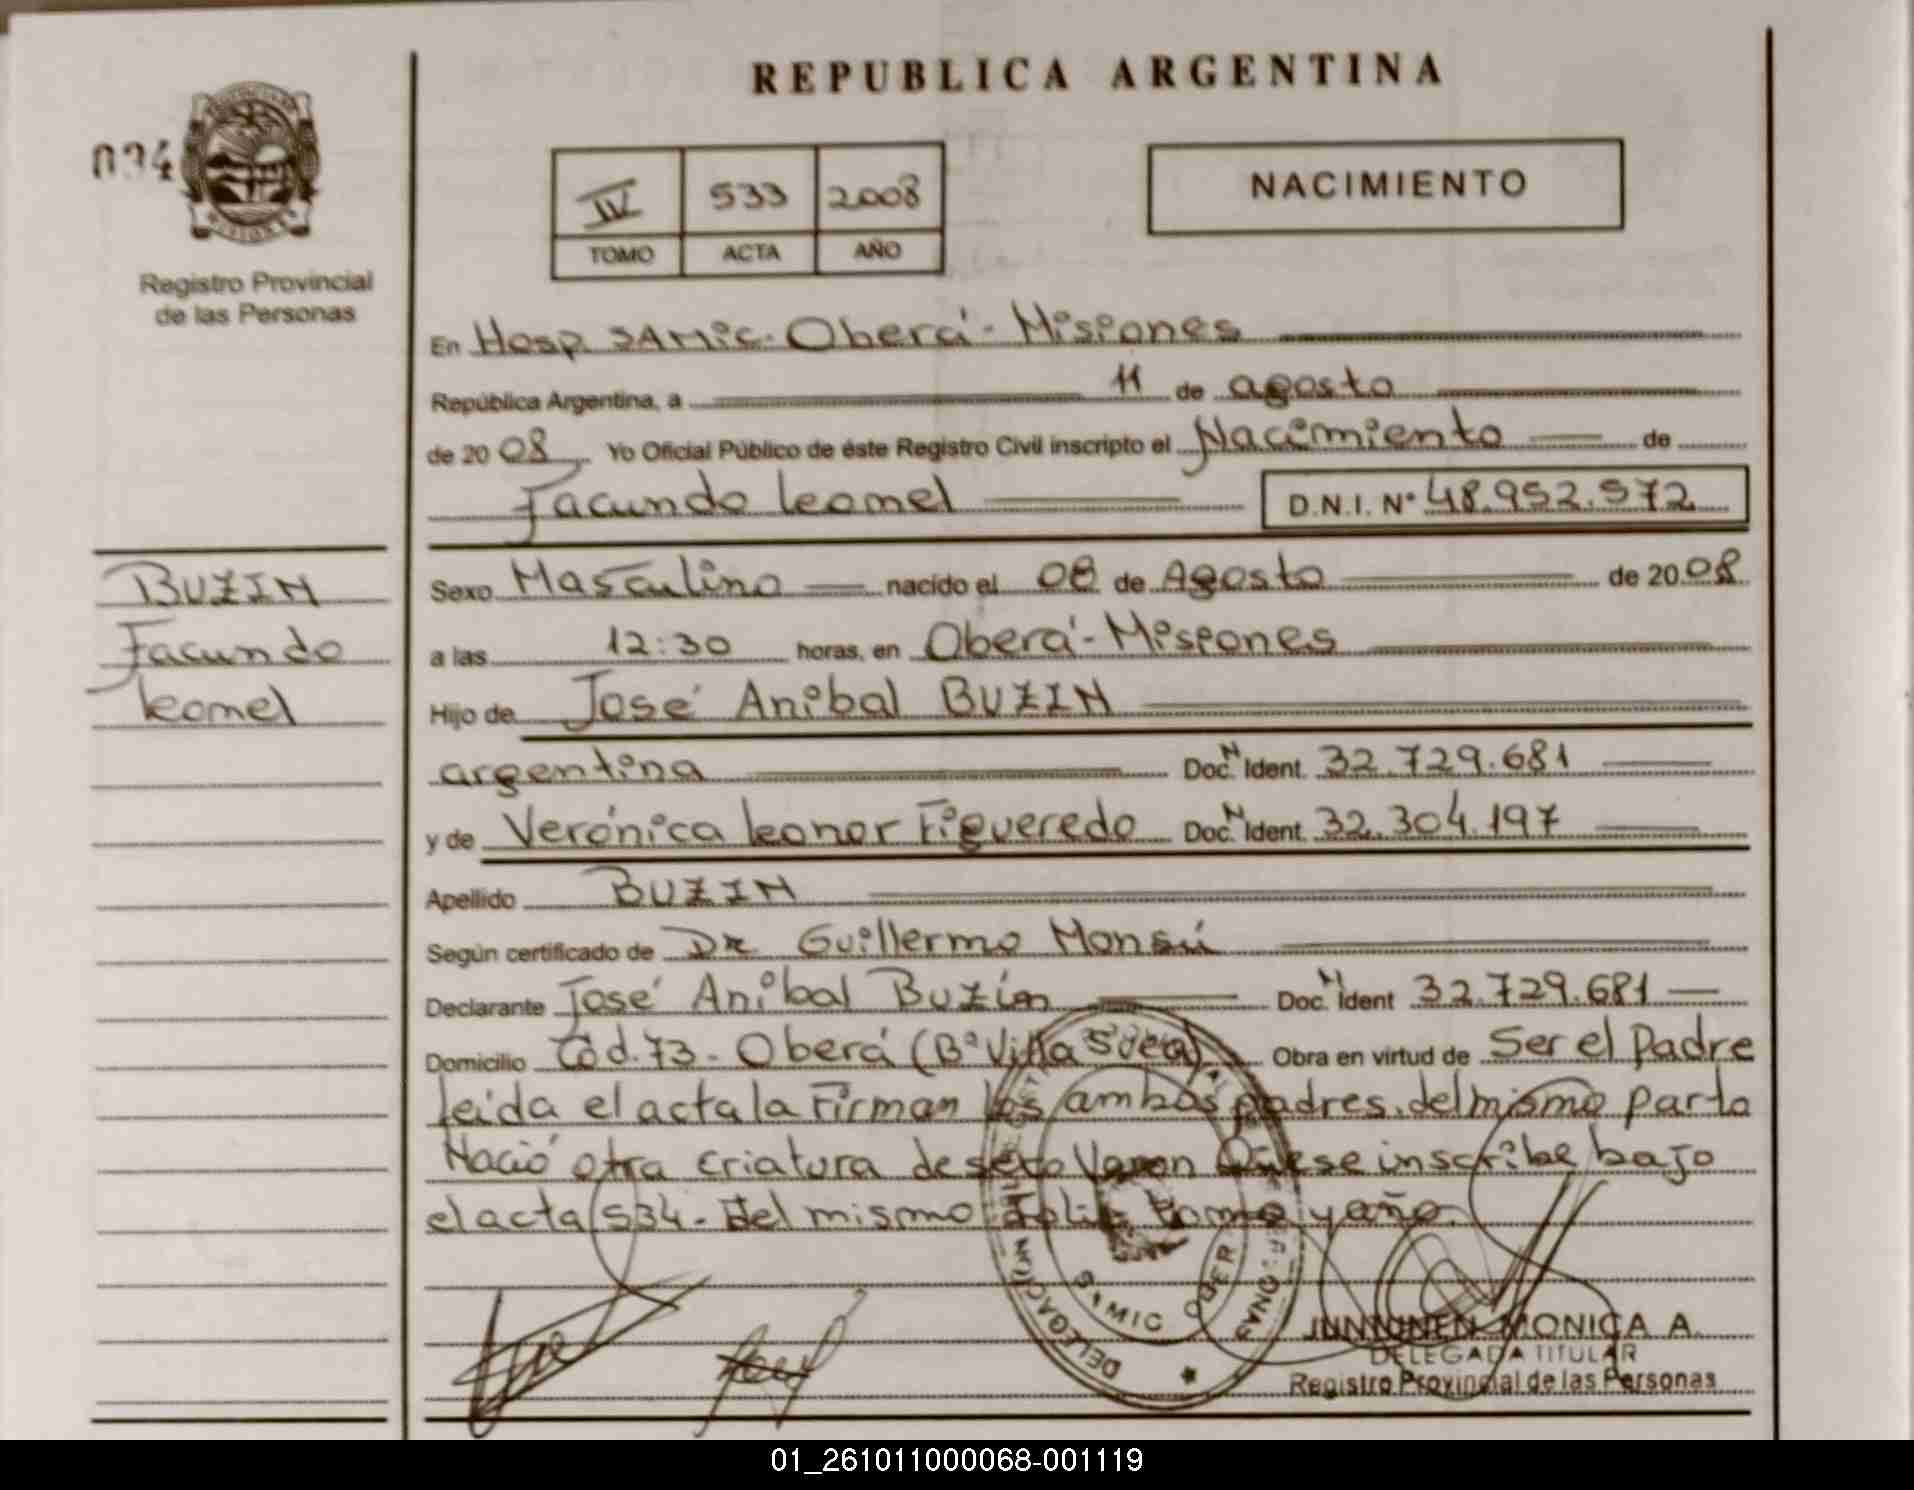 REPUBLICA ARGENTINA
034
IV 533 2008
TOMO ACTA AÑO
NACIMIENTO
Registro Provincial
de las Personas
En Hosp. SAMIC. Oberá - Misiones
República Argentina, a 11 de agosto
de 2008 Yo Oficial Público de éste Registro Civil inscripto el Nacimiento de
Facundo Leonel D.N.I. Nº 48.952.572
BUZIN
Facundo
Leonel
Sexo Masculino nacido el 08 de Agosto de 2008
a las 12:30 horas, en Oberá - Misiones
Hijo de José Anibal BUZIN
argentina Doc. N Ident. 32.729.681
y de Verónica Leonor Figueredo Doc. N Ident. 32.304.197
Apellido BUZIN
Según certificado de Dr Guillermo
Declarante José Anibal Buzin Doc. N Ident 32.729.681
Domicilio Cód. 73 - Oberá (Bº Villa Obra en virtud de Ser el Padre
leida el acta la Firman los ambos padres. del mismo parto
Nació otra criatura de sexo Varon Que se inscribe bajo
el acta 534 - Del mismo Folio tomo y año.
DELEGACION
SAMIC OBERA
MONICA A.
DELEGADA TITULAR
Registro Provincial de las Personas
01_261011000068-001119